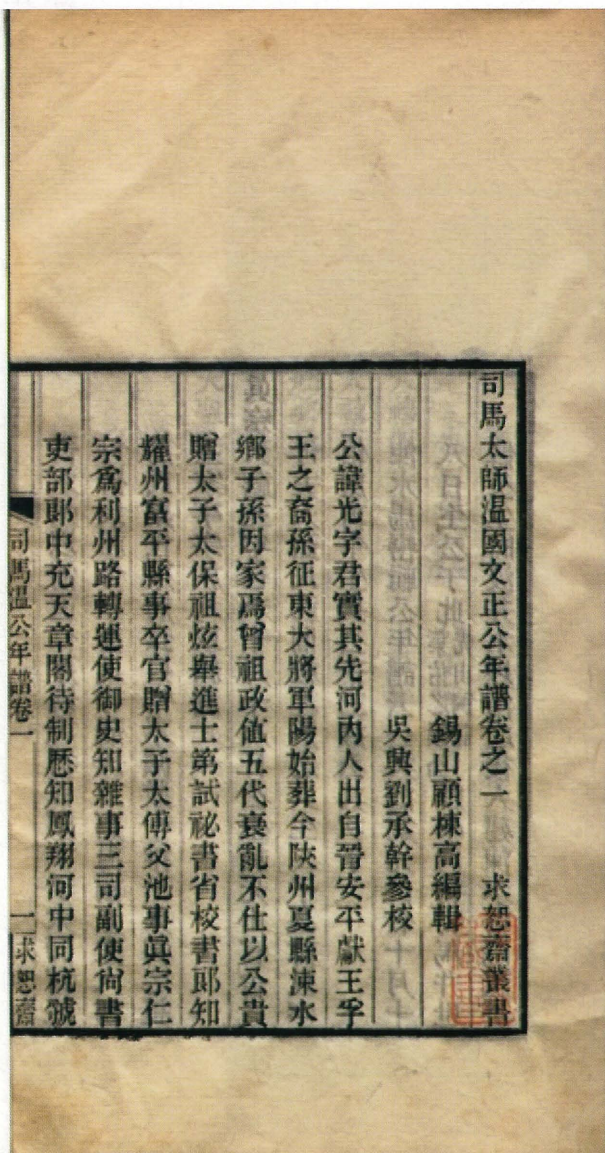 司馬太師溫國文正公年譜卷之一 求恕齋叢書
錫山顧棟高編輯
吳興劉承幹參校
公諱光字君實其先河內人出自晉安平獻王孚
王之裔孫征東大將軍陽始葬今陝州夏縣涑水
鄉子孫因家焉曾祖政值五代衰亂不仕以公貴
贈太子太保祖炫舉進士第試祕書省校書郎知
耀州富平縣事卒官贈太子太傅父池事眞宗仁
宗爲利州路轉運使御史知雜事三司副使尙書
吏部郎中充天章閣待制歷知鳳翔河中同杭虢
司馬溫公年譜卷一
一
求恕齋